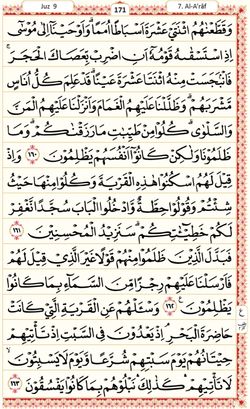 Juz 9
171
7. Al-A'rāf
وَقَطَّعْنٰهُمُ اثْنَتَيْ عَشْرَةَ اَسْبَاطًا اُمَمًا ۗ وَاَوْحَيْنَآ اِلٰى مُوْسٰٓى
اِذِ اسْتَسْقٰىهُ قَوْمُهٗٓ اَنِ اضْرِبْ بِّعَصَاكَ الْحَجَرَ ۚ
فَانْۢبَجَسَتْ مِنْهُ اثْنَتَا عَشْرَةَ عَيْنًا ۗ قَدْ عَلِمَ كُلُّ اُنَاسٍ
مَّشْرَبَهُمْ ۗ وَظَلَّلْنَا عَلَيْهِمُ الْغَمَامَ وَاَنْزَلْنَا عَلَيْهِمُ الْمَنَّ
وَالسَّلْوٰى ۗ كُلُوْا مِنْ طَيِّبٰتِ مَا رَزَقْنٰكُمْ ۗ وَمَا
ظَلَمُوْنَا وَلٰكِنْ كَانُوْٓا اَنْفُسَهُمْ يَظْلِمُوْنَ ١٦٠ وَاِذْ
قِيْلَ لَهُمُ اسْكُنُوْا هٰذِهِ الْقَرْيَةَ وَكُلُوْا مِنْهَا حَيْثُ
شِئْتُمْ وَقُوْلُوْا حِطَّةٌ وَّادْخُلُوا الْبَابَ سُجَّدًا نَّغْفِرْ
لَكُمْ خَطِيْۤـٰٔتِكُمْ ۗ سَنَزِيْدُ الْمُحْسِنِيْنَ ١٦١
فَبَدَّلَ الَّذِيْنَ ظَلَمُوْا مِنْهُمْ قَوْلًا غَيْرَ الَّذِيْ قِيْلَ لَهُمْ
فَاَرْسَلْنَا عَلَيْهِمْ رِجْزًا مِّنَ السَّمَاۤءِ بِمَا كَانُوْا
يَظْلِمُوْنَ ١٦٢ وَسْـَٔلْهُمْ عَنِ الْقَرْيَةِ الَّتِيْ كَانَتْ
حَاضِرَةَ الْبَحْرِ ۘ اِذْ يَعْدُوْنَ فِى السَّبْتِ اِذْ تَأْتِيْهِمْ
حِيْتَانُهُمْ يَوْمَ سَبْتِهِمْ شُرَّعًا وَّيَوْمَ لَا يَسْبِتُوْنَ ۙ
لَا تَأْتِيْهِمْ ۛ كَذٰلِكَ ۛ نَبْلُوْهُمْ بِمَا كَانُوْا يَفْسُقُوْنَ ١٦٣